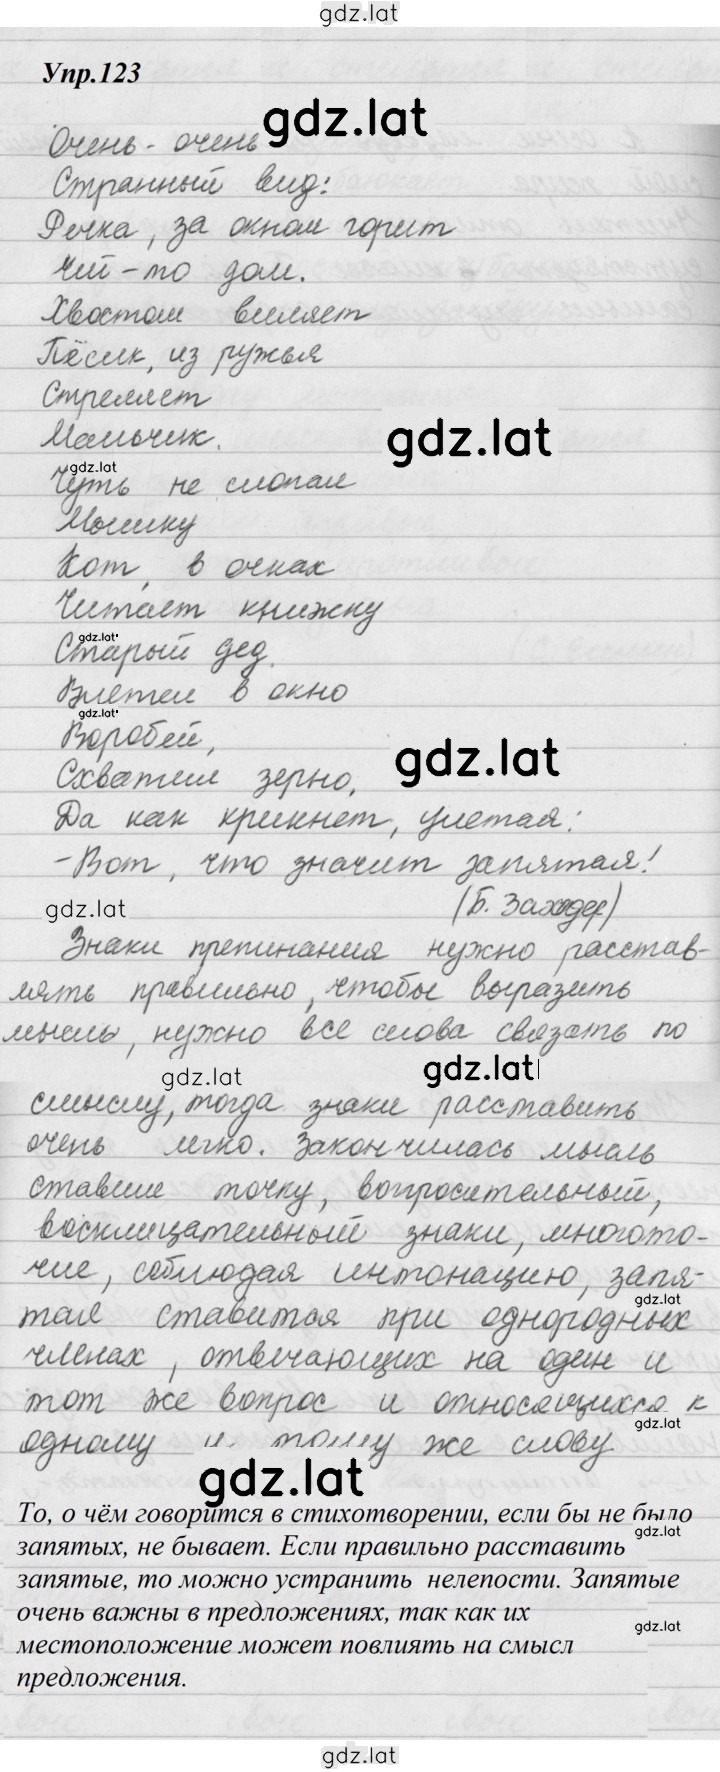 gdz.lat
Упр.123
gdz.lat
Очень-очень
Странный вид:
Речка, за окном горит
Чей-то дом.
Хвостом виляет
Пёсик, из ружья
Стреляет
Мальчик.
gdz.lat
gdz.lat
Чуть не слопал
Мышку
Кот, в очках
Читает книжку
gdz.lat
Старый дед.
Влетел в окно
gdz.lat
Воробей,
gdz.lat
Схватил зерно,
Да как крикнет, улетая:
-Вот, что значит запятая!
gdz.lat
(Б. Заходер)
Знаки препинания нужно расстав-
лять правильно, чтобы выразить
мысль, нужно все слова связать по
gdz.lat
gdz.lat
смыслу, тогда знаки расставить
очень легко. Закончилась мысль
ставше точку, вопросительный,
восклицательный знаки, многото-
чие, соблюдая интонацию, запя-
gdz.lat
тая ставится при однородных
членах, отвечающих на один и
тот же вопрос и относящихся к
gdz.lat
одному и тому же слову
gdz.lat
То, о чём говорится в стихотворении, если бы не было
gdz.lat
запятых, не бывает. Если правильно расставить
запятые, то можно устранить нелепости. Запятые
очень важны в предложениях, так как их
gdz.lat
местоположение может повлиять на смысл
предложения.
gdz.lat